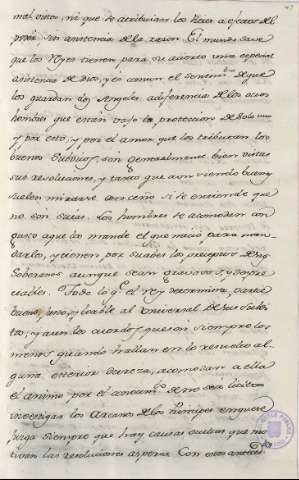 que los Reyes tienen para su acierto una especial
asistencia de Dios, y es comun el
los guardan los Angeles, a diferencia de los otros
hombres que están vajo la proteccion de solo uno
y por esto, y por el amor que les tributan los
buenos subditos, son generalmente bien vistas
sus resoluciones, y tanto que aun siendo buenas
suelen mirarse con ceño si se entiende que
no son suias. Los hombres se acomodan con
gusto a que los mande el que nació para man
darlos, y tienen por suabes los preceptos de sus
Soberanos aunque sean gravosos, y despre
ciables. Todo lo q.e el Rey determina, parece
bueno, justo, y loable al Universal de sus subdi
tos, y aun los cuerdos que son siempre los
menos quando hallan en lo resuelto al
guna exterior dureza, acomodan a ella
el animo por el de no ser licito
investigar los Arcanos de los Principes en que se
juzga siempre que hay causas ocultas que mo
tivan las resoluciones asperas. Con estos